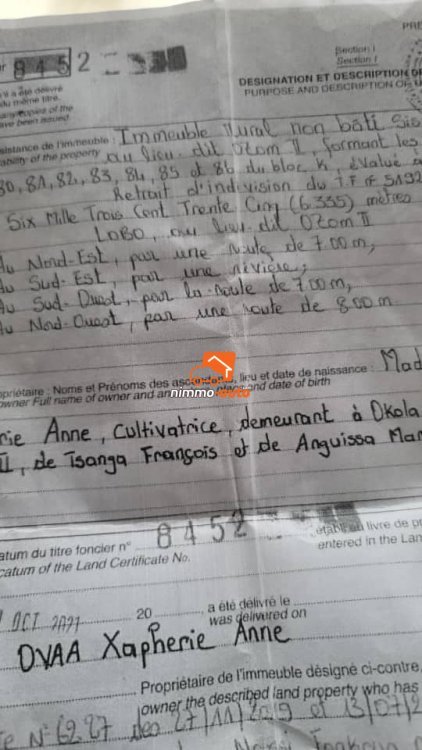 PRE
8452
Section I
Section I
DESIGNATION ET DESCRIPTION DE
PURPOSE AND DESCRIPTION OF
a été délivré
du même titre.
copies of the
have been issued
sistance de l'immeuble : Immeuble rural non bâti Sis
of the property au lieu dit Ozom II, formant les
80, 81, 82, 83, 84, 85 et 86 du bloc K, évalué à
Retrait d'indivision du T.F n° 5192
Six Mille Trois Cent Trente Cinq (6.335) mètres
LOBO, au lieu dit Ozom II
du Nord-Est, par une route de 7.00m,
Au Sud-Est, par une rivière;
Au Sud-Ouest, par la route de 7.00m,
Au Nord-Ouest, par une route de 8.00m
nimmo
opriétaire : Noms et Prénoms des ascendants, lieu et date de naissance : Mad
owner Full name of owner and place and date of birth
rie Anne, Cultivatrice, demeurant à Okola
II, de Tsanga François et de Anguissa Mar
atum du titre foncier n° 8452 établi au livre de
catum of the Land Certificate No. entered in the Lan
OCT 2021 20 a été délivré le
was delivered on
OVAA Xapherie Anne
Propriétaire de l'immeuble désigné ci-contre,
owner the described land property who has
N° 6227 des 27/11/2019 et 13/07/2